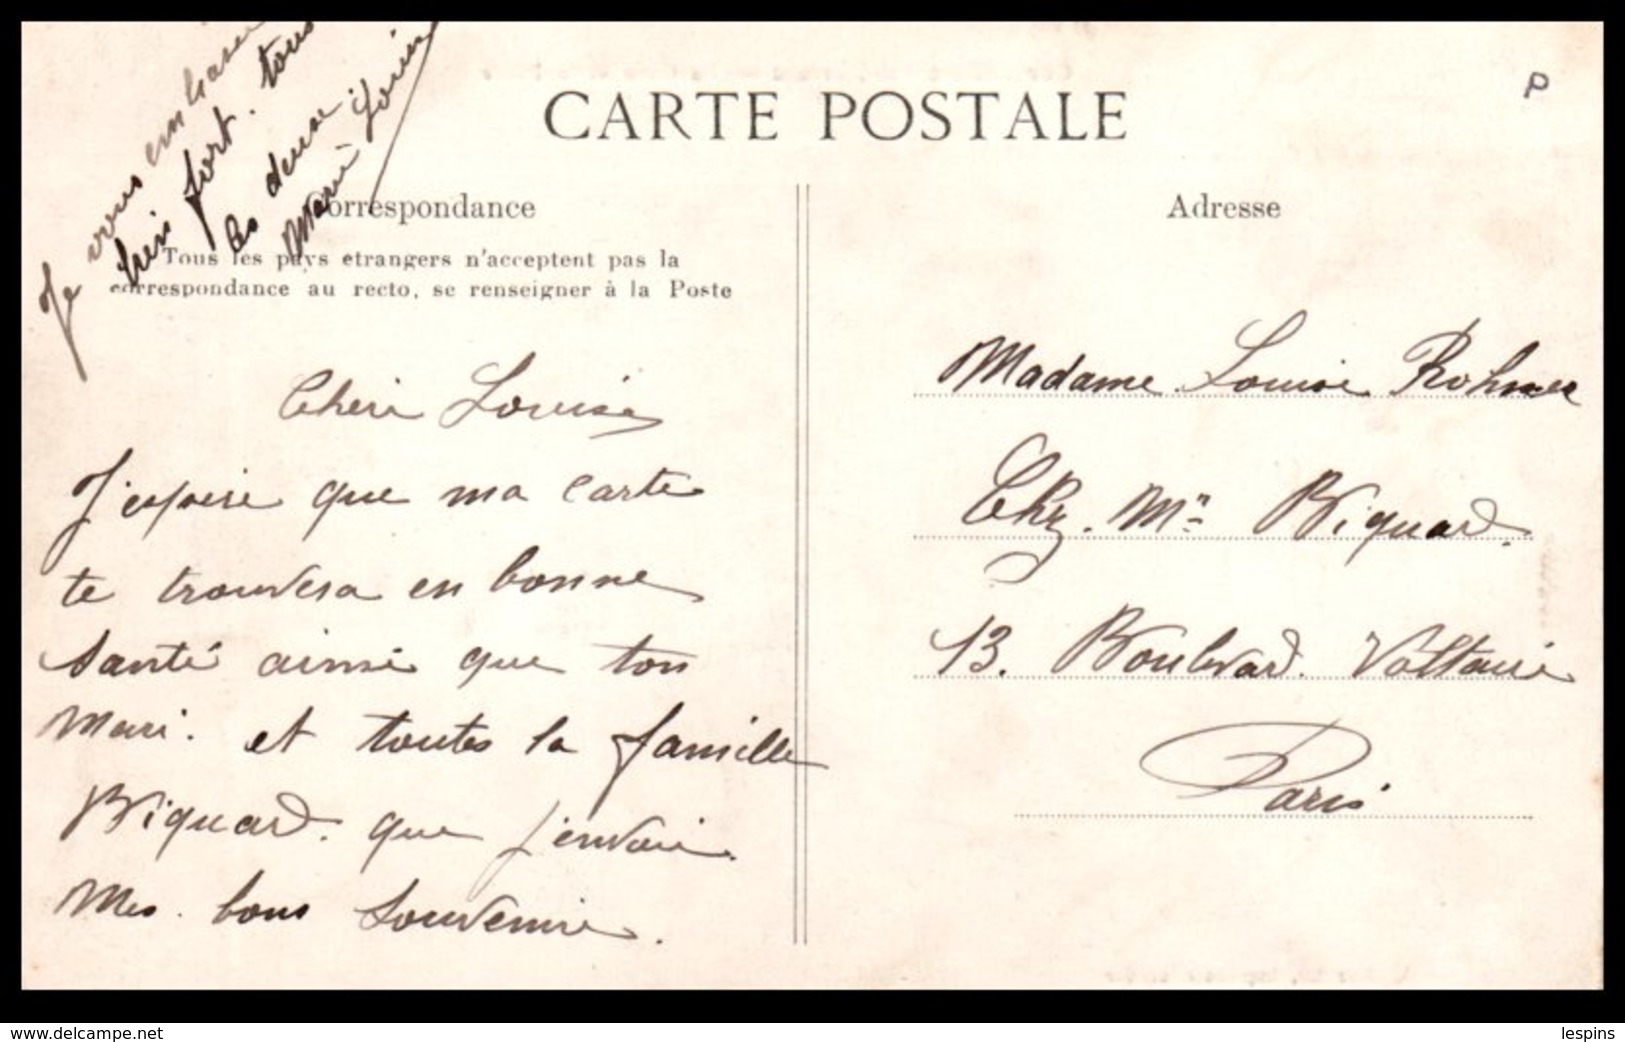 CARTE POSTALE
P
Correspondance
Adresse
Tous les pays étrangers n'acceptent pas la
correspondance au recto, se renseigner à la Poste
Je vous embrasse
bien fort. tous
les deux.
Marie-Louise
Chéri Louise
J'espère que ma carte
te trouvera en bonne
santé ainsi que ton
Mari. et toutes la famille
Biquard. que j'envoie
Mes. bons souvenir.
Madame Louise Rohmer
Chez. Mr Biquard.
13. Boulvard. Voltaire
Paris
www.delcampe.net
lespins